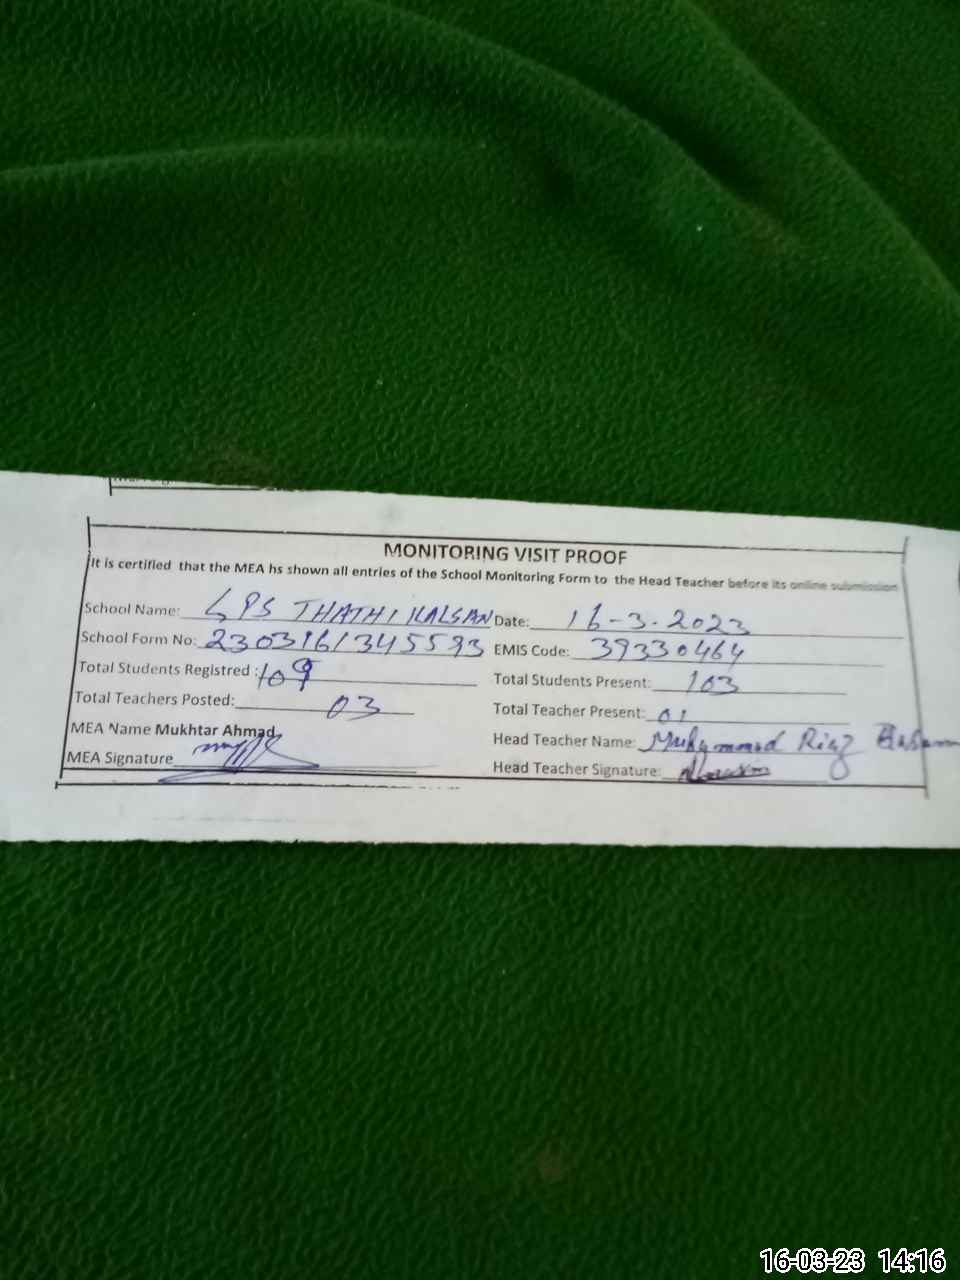 MONITORING VISIT PROOF
It is certified that the MEA hs shown all entries of the School Monitoring Form to the Head Teacher before its online submission
School Name: GPS THATHI KALSAN Date: 16-3-2023
School Form No: 2303161345593 EMIS Code: 39330464
Total Students Registred : 109 Total Students Present: 103
Total Teachers Posted: 03 Total Teacher Present: 01
MEA Name Mukhtar Ahmad Head Teacher Name: Muhammad Riaz
MEA Signature Head Teacher Signature:
16-03-23 14:16